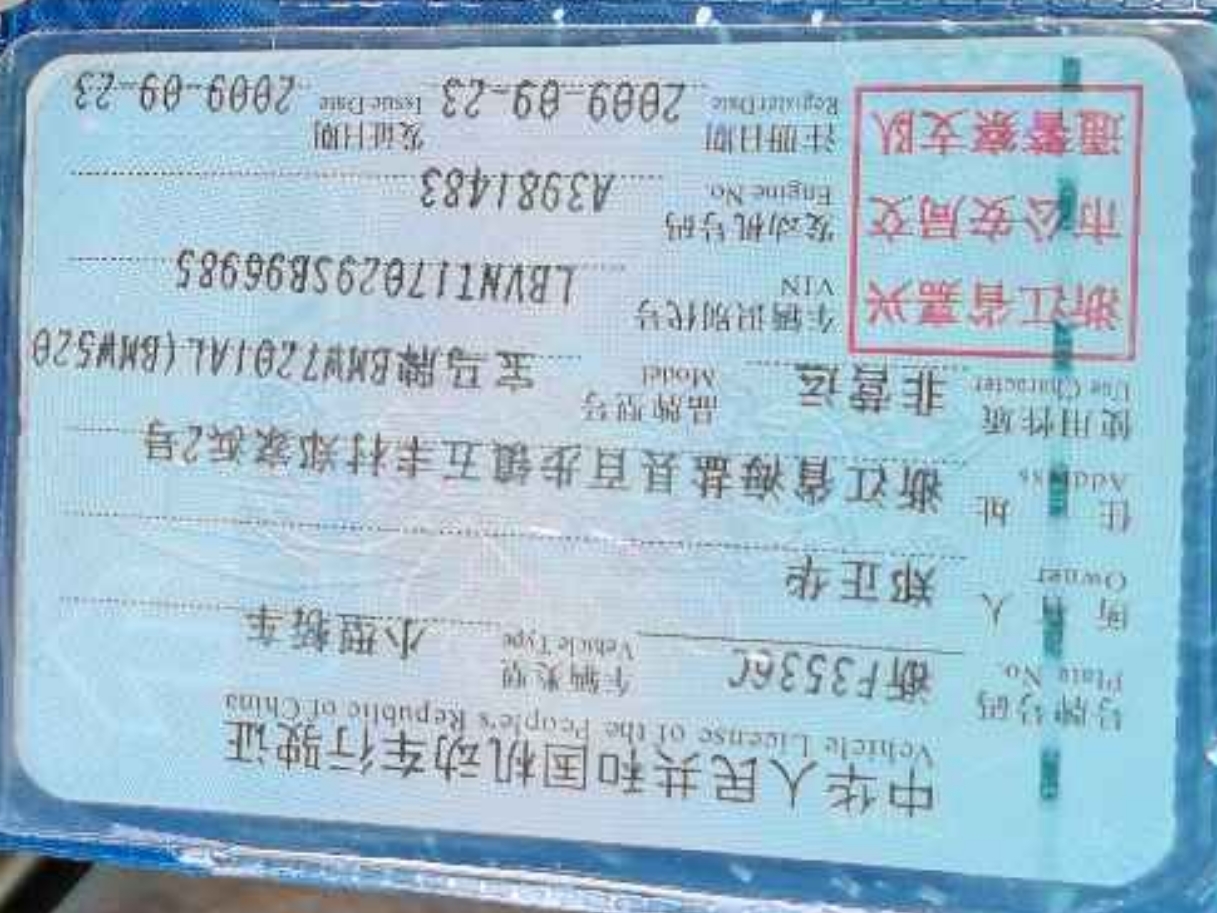 中华人民共和国机动车行驶证
Vehicle License of the People's Republic of China
号牌号码 浙F3536C 车辆类型 小型轿车
Plate No. Vehicle Type
所有人 郑正华
Owner
住址 浙江省海盐县百步镇五丰村郑家浜2号
Address
使用性质 非营运 品牌型号 宝马牌BMW7201AL(BMW520
Use Character Model
浙江省嘉兴
市公安局交
通警察支队
车辆识别代号 LBVNT17029SB96985
VIN
发动机号码 A3981483
Engine No.
注册日期 2009-09-23 发证日期 2009-09-23
Register Date Issue Date